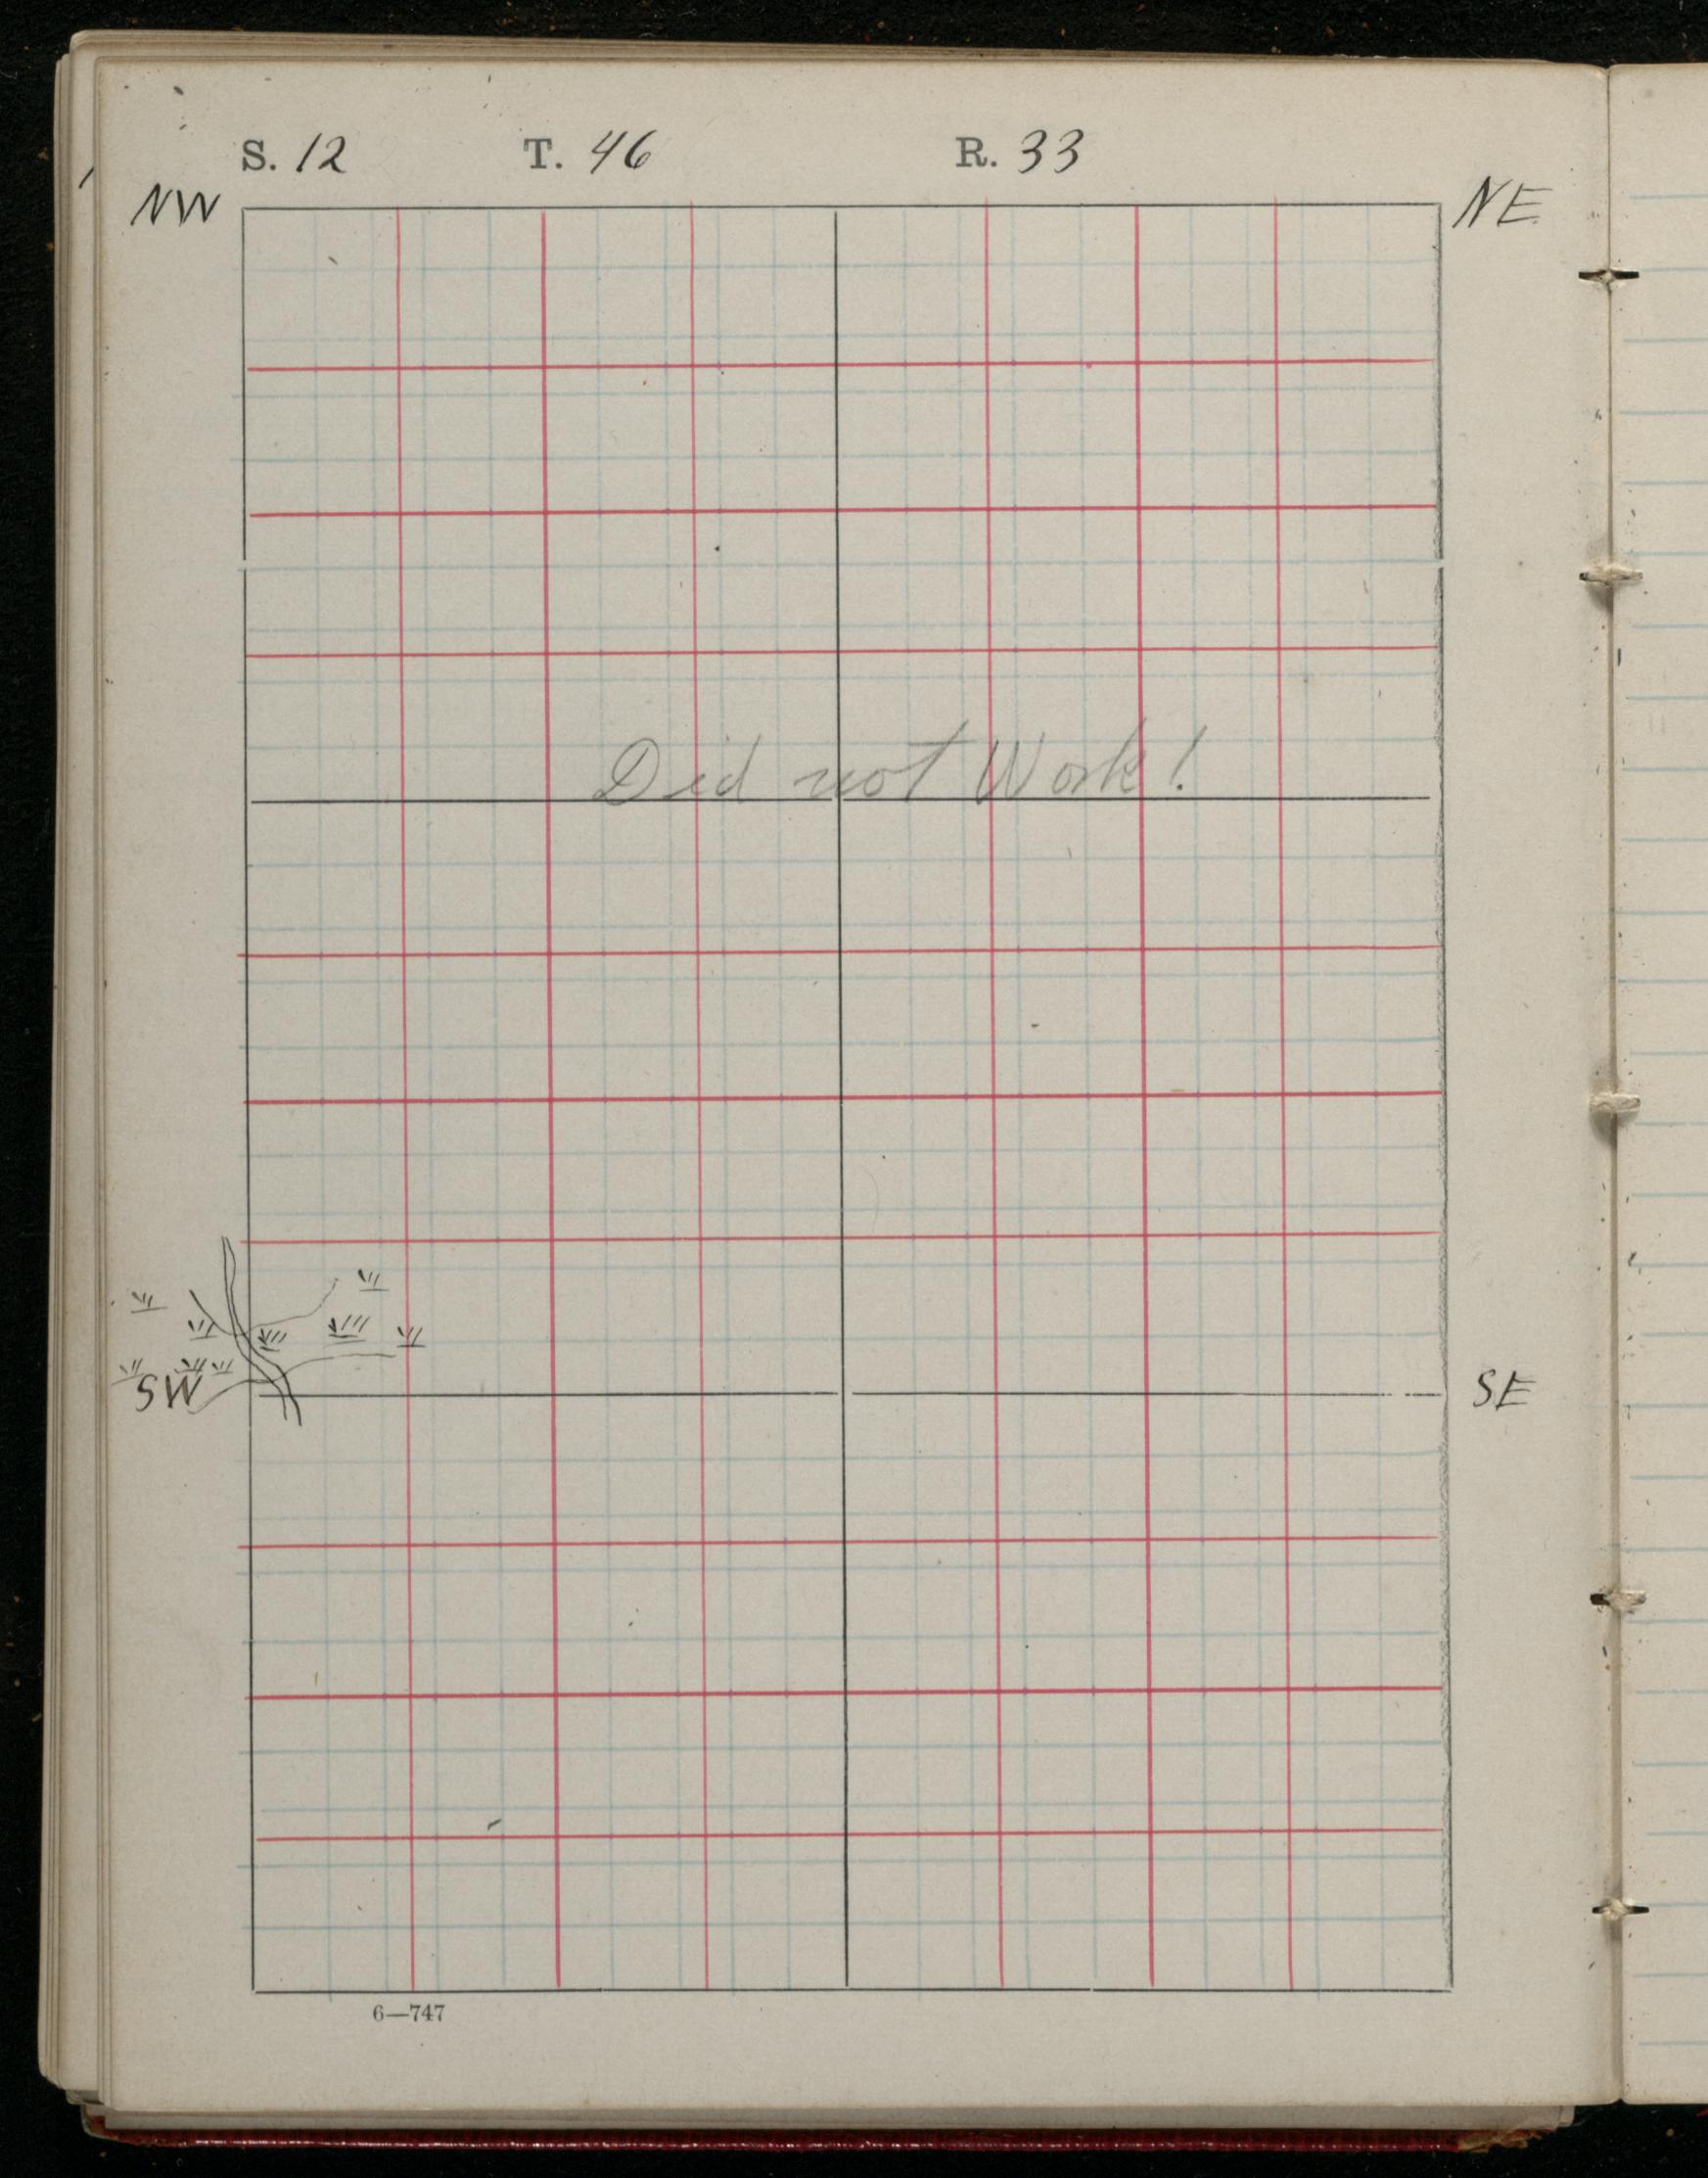 S. 12 T. 46 R. 33
NW NE
Did not Work!
SW SE
6—747